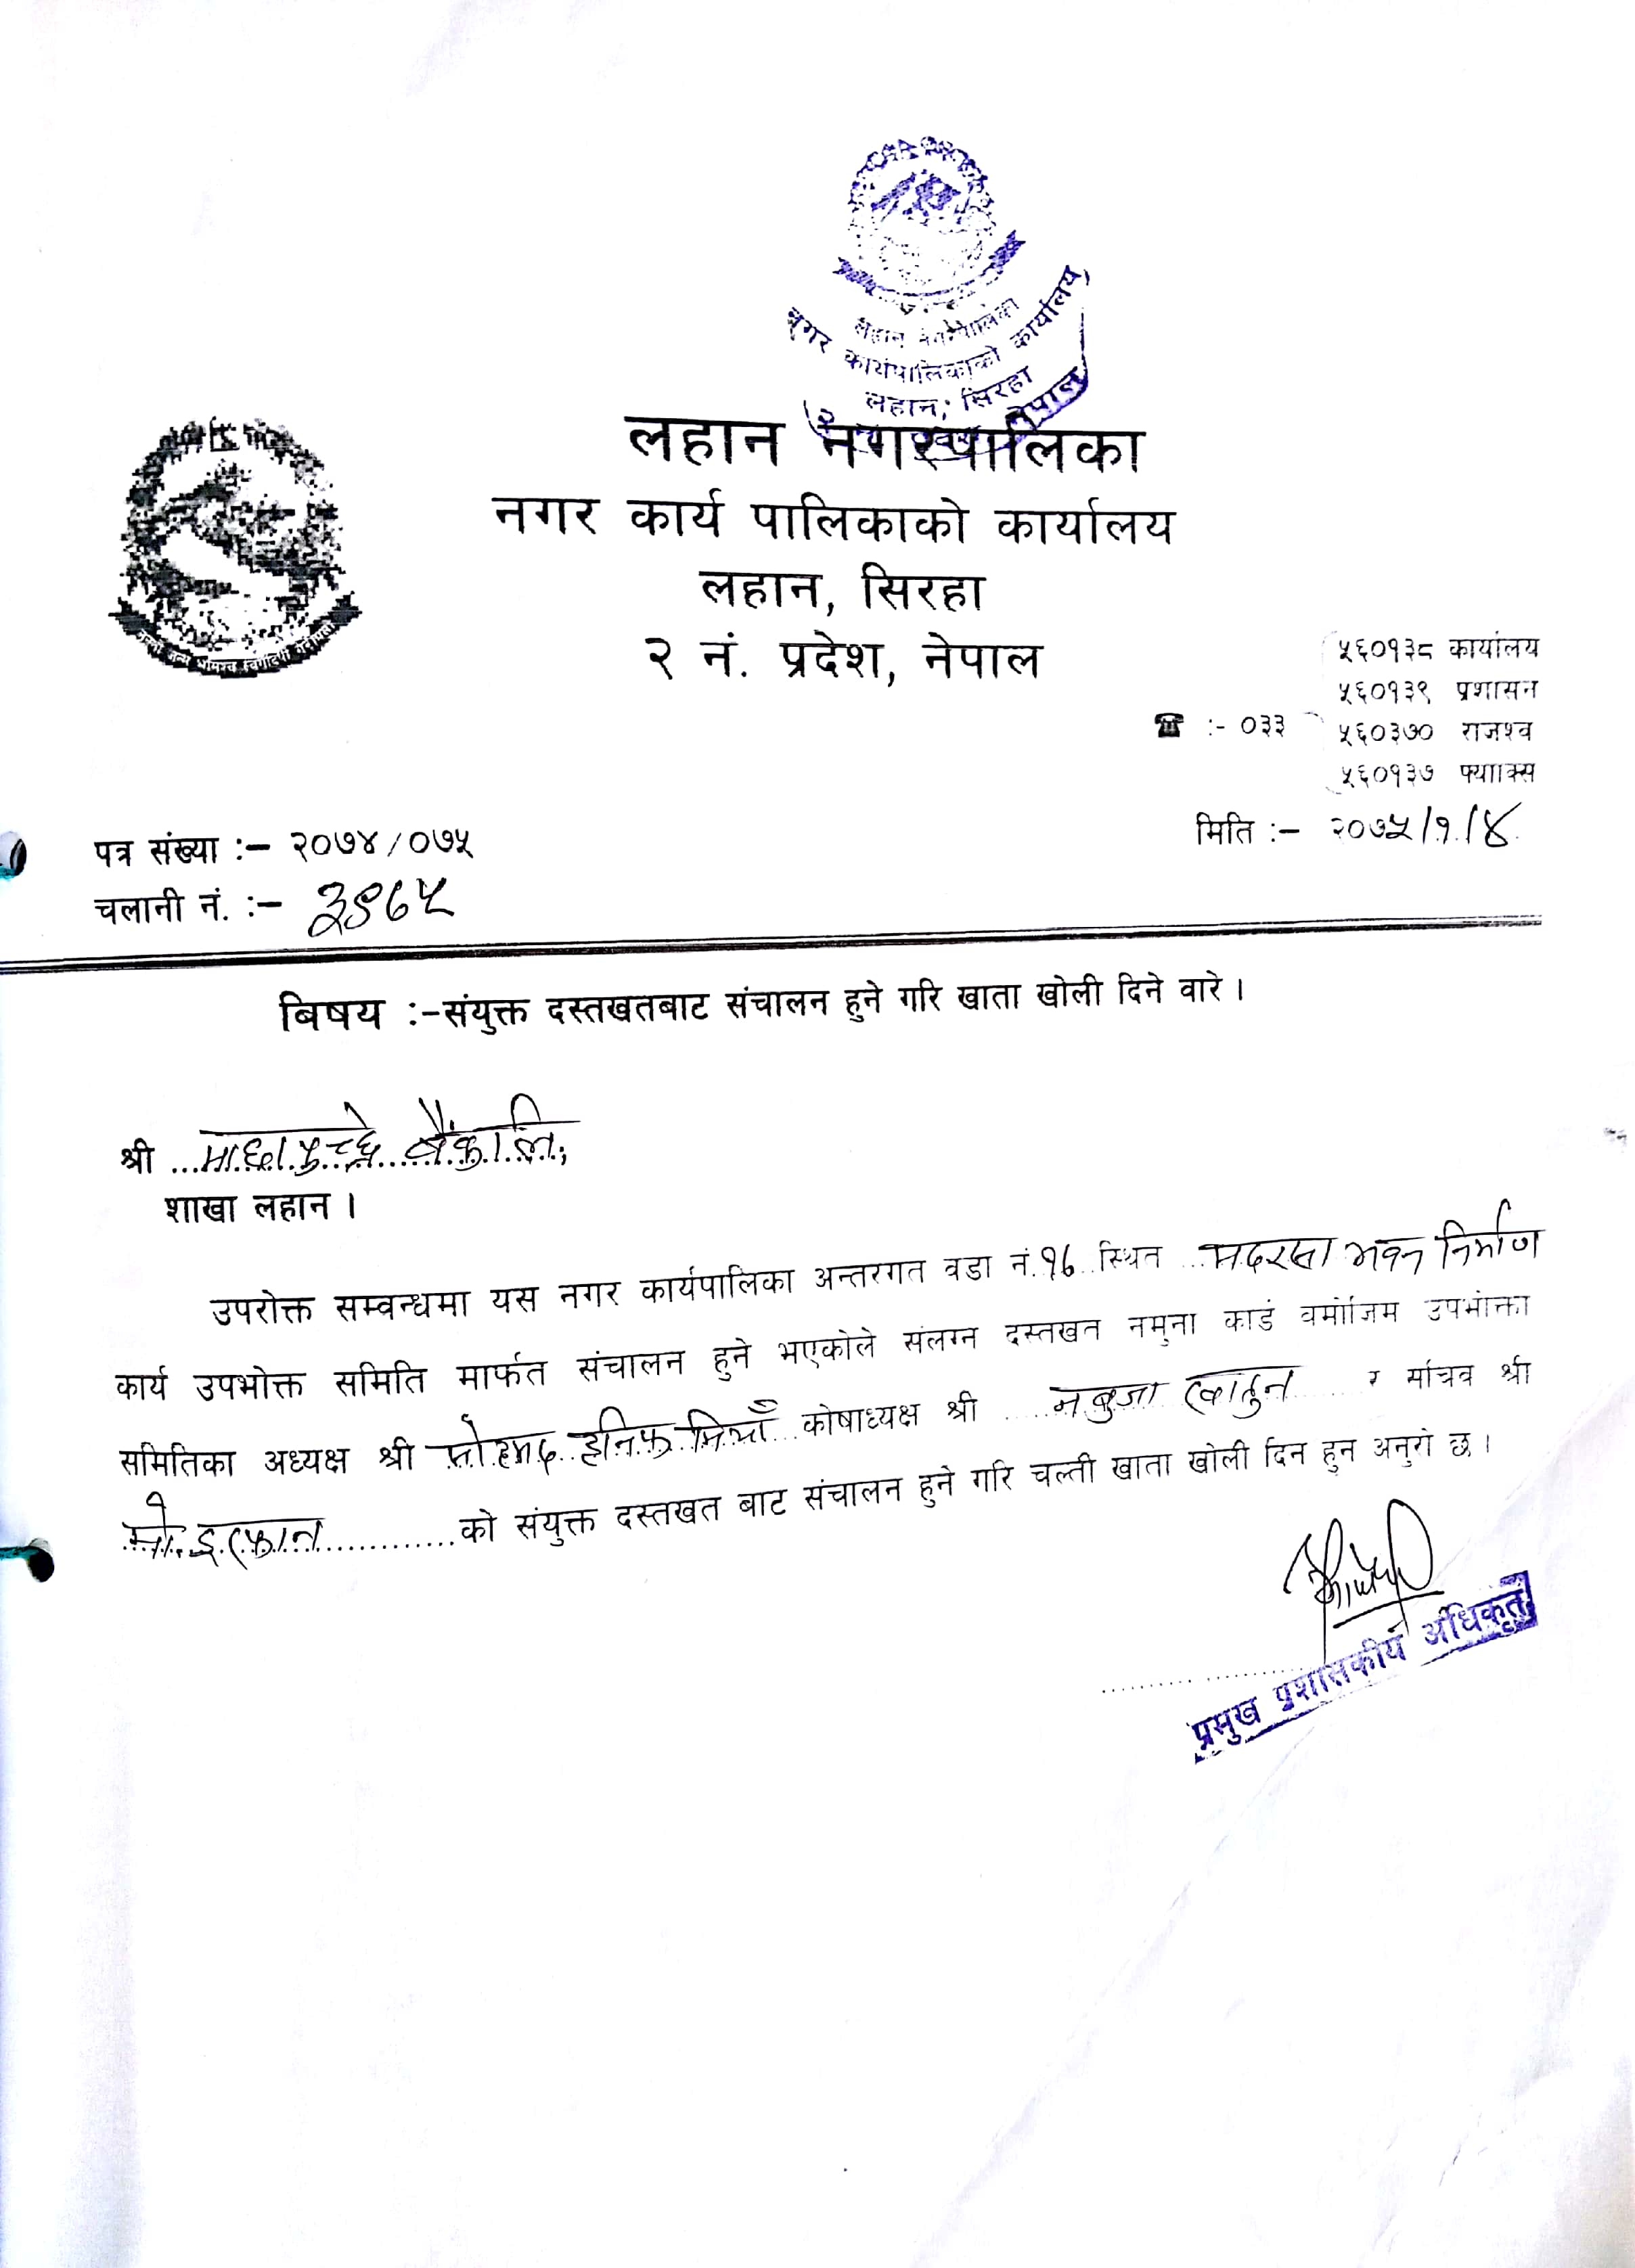 लहान नगरपालिका
नगर कार्यपालिकाको कार्यालय
लहान, सिरहा
नेपाल
लहान नगरपालिका
नगर कार्य पालिकाको कार्यालय
लहान, सिरहा
२ नं. प्रदेश, नेपाल
५६०१३८ कार्यालय
५६०१३९ प्रशासन
☎ :- ०३३ ५६०३७० राजश्व
५६०१३७ फ्याक्स
पत्र संख्या :– २०७४/०७५
मिति :– २०७५/१/४
चलानी नं. :–
बिषय :–संयुक्त दस्तखतबाट संचालन हुने गरि खाता खोली दिने वारे ।
श्री माछापुच्छ्रे बैंक लि.
शाखा लहान ।
उपरोक्त सम्वन्धमा यस नगर कार्यपालिका अन्तरगत वडा नं.१६ स्थित मदरसा भवन निर्माण
कार्य उपभोक्त समिति मार्फत संचालन हुने भएकोले संलग्न दस्तखत नमुना कार्ड वमोजिम उपभोक्ता
समितिका अध्यक्ष श्री मोहमद हनिफ मियाँ कोषाध्यक्ष श्री खातुन र सचिव श्री
मो. इरफान को संयुक्त दस्तखत बाट संचालन हुने गरि चल्ती खाता खोली दिन हुन अनुरो छ ।
प्रमुख प्रशासकीय अधिकृत